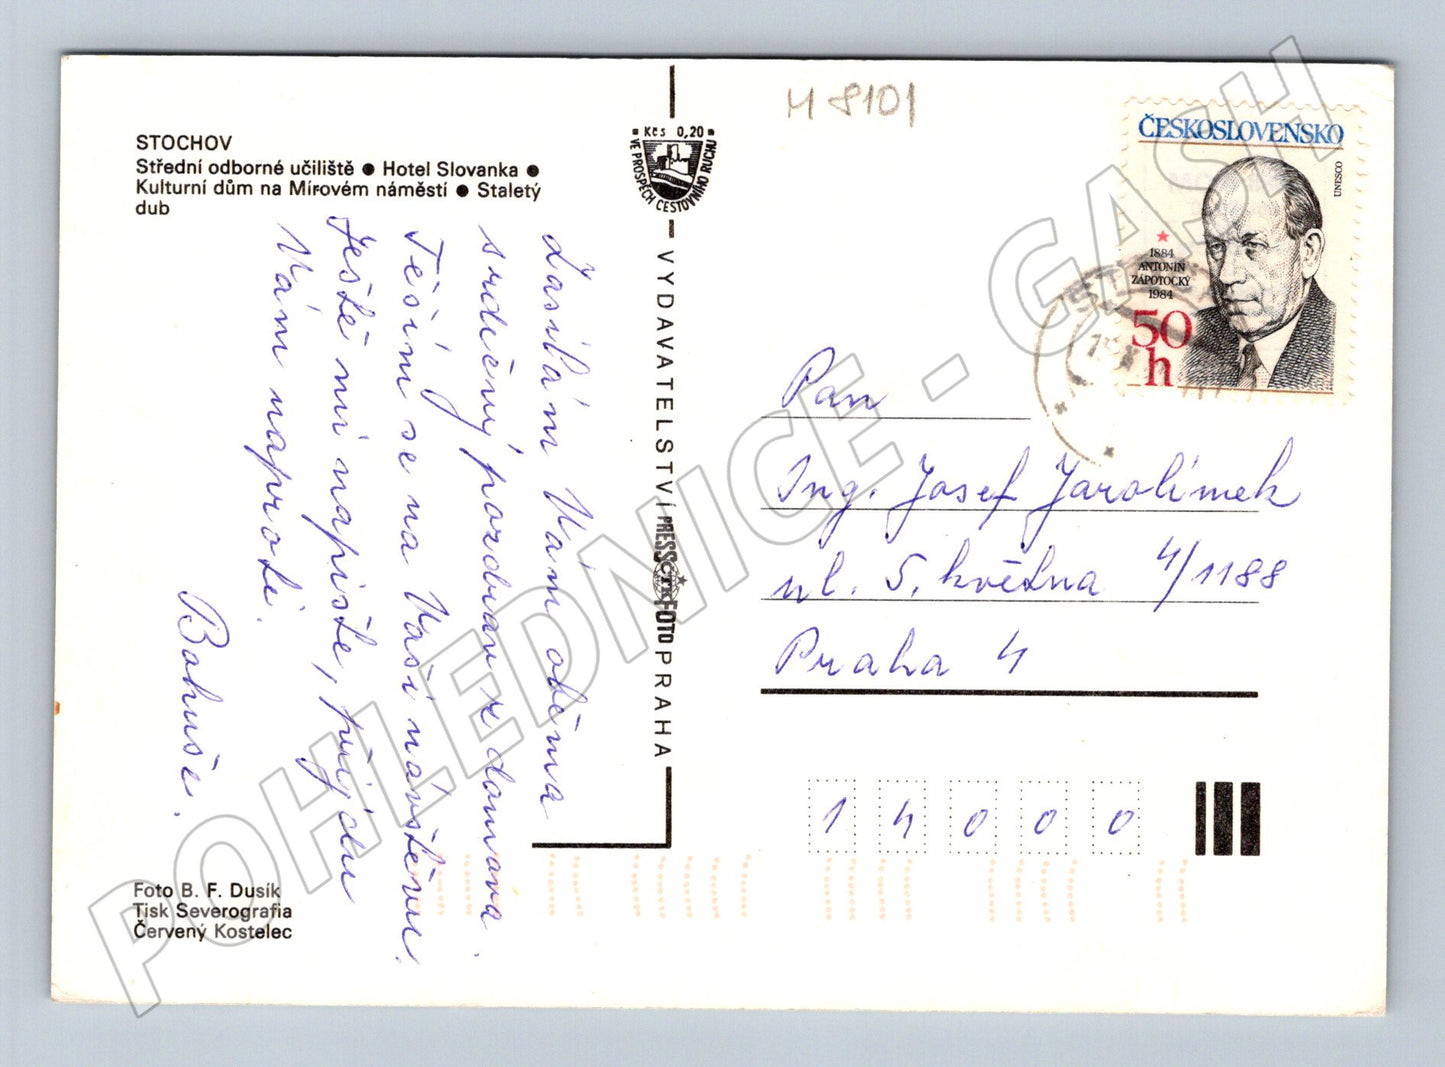 STOCHOV
Střední odborné učiliště ● Hotel Slovanka ●
Kulturní dům na Mírovém náměstí ● Staletý
dub
Zasílám Vám oběma
srdečný pozdrav z domova.
Těším se na Vaši návštěvu.
Ještě mi napište, přijedu
Vám naproti.
Bohuše.
Foto B. F. Dusík
Tisk Severografia
Červený Kostelec
Kčs 0,20
VE PROSPĚCH CESTOVNÍHO RUCHU
VYDAVATELSTVÍ PRESSFOTO PRAHA
ČTK
M 8101
ČESKOSLOVENSKO
UNESCO
1884
ANTONÍN
ZÁPOTOCKÝ
1984
50
h
Pan
Ing. Josef Jarolímek
ul. 5. května 4/1188
Praha 4
14000
POHLEDNICE - GASH